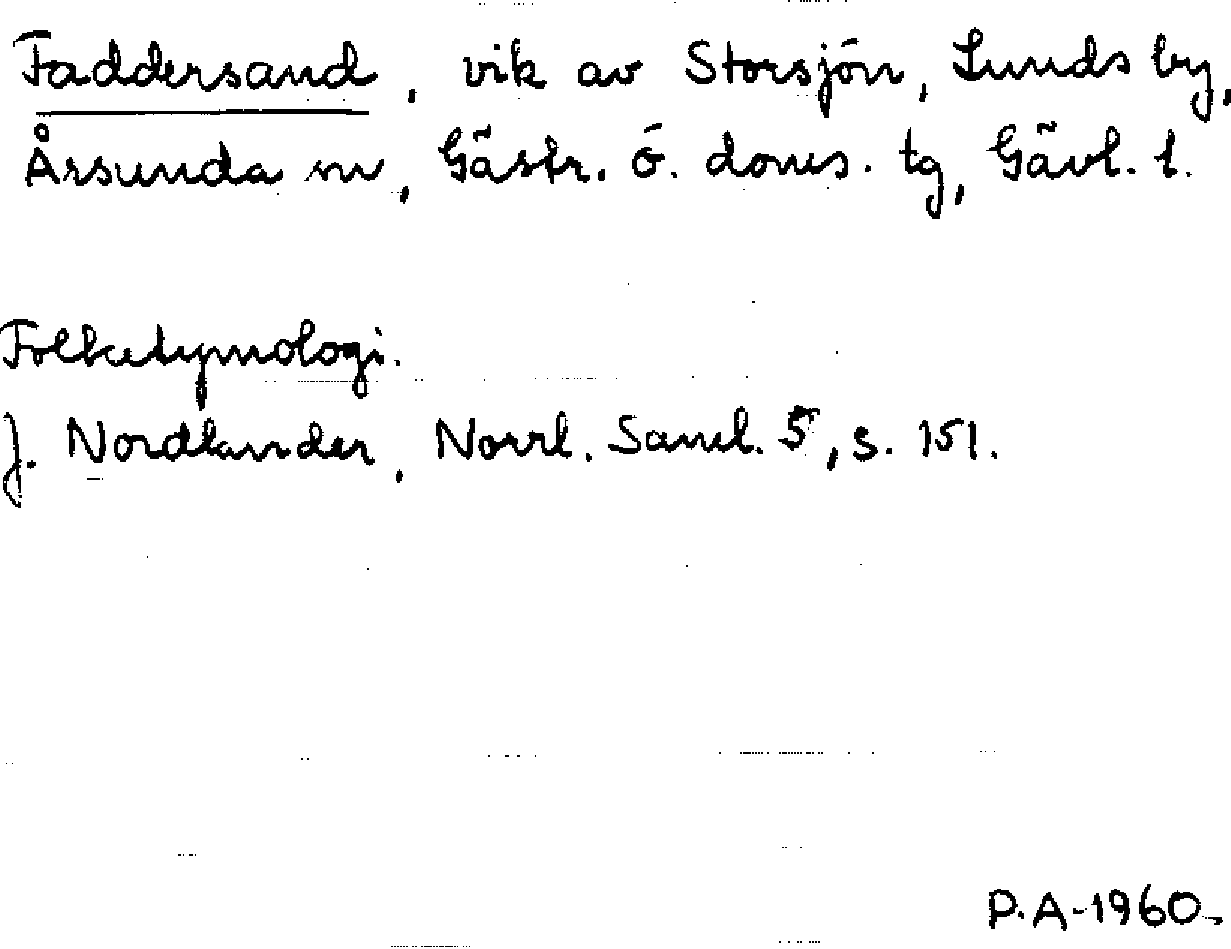 Faddersand, vik av Storsjön, Lunds by,
Årsunda sn, Gästr. ö. doms. tg, Gävl. l.
Folketymologi.
J. Nordlander, Norrl. Saml. 5, s. 151.
P.A-1960.